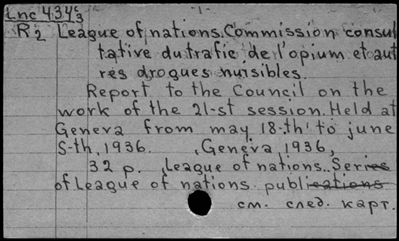 Lnc 434c3 -1-
R2 League of nations. Commission consul
tative du trafic de l'opium et aut
res drogues nuisibles.
Report to the Council on the
work of the 21-st session. Held at
Geneva from may 18-th to june
5-th, 1936. Geneva, 1936,
32 p. League of nations. Series
of League of nations publications
см. след. карт.